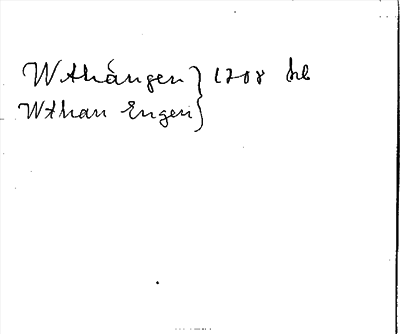 Wthången } 1708 hl
Wthan Engen }